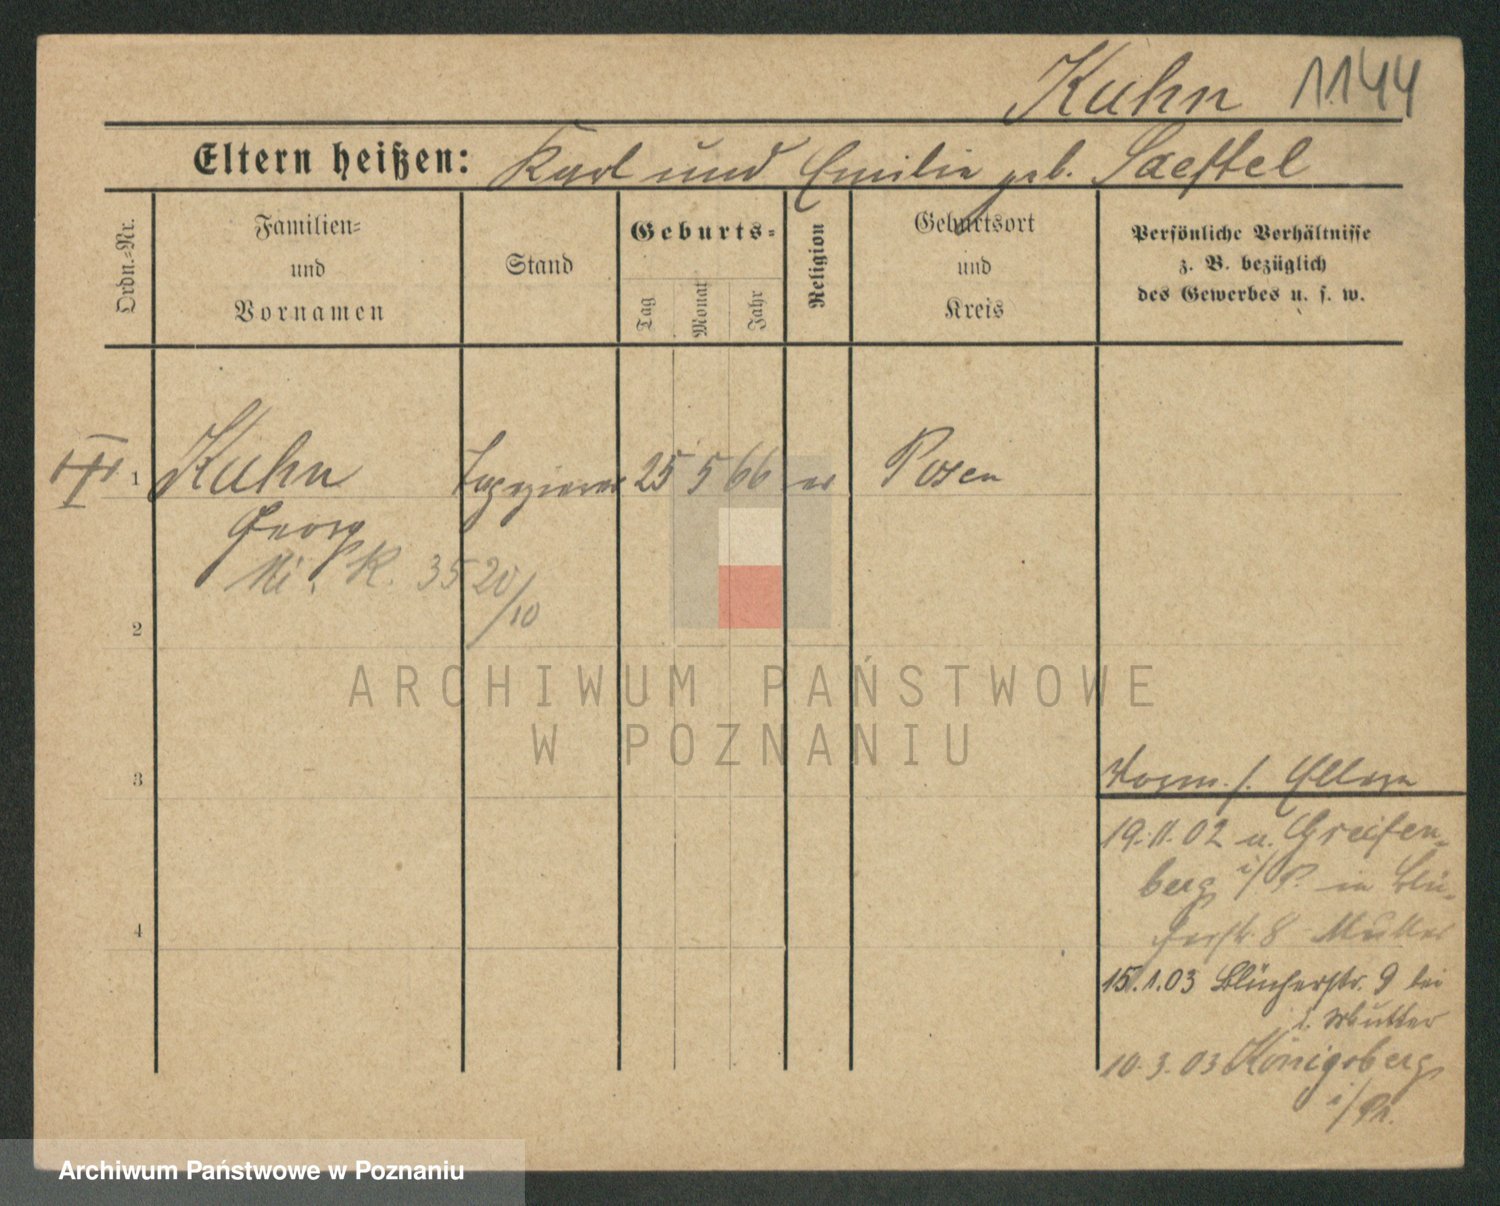 Kuhn 1144
Eltern heißen: Karl und Emilie geb. Saeftel
Ordn.-Nr.
Familien-
und
Vornamen
Stand
Geburts-
Tag
Monat
Jahr
Religion
Geburtsort
und
Kreis
Persönliche Verhältnisse
z. B. bezüglich
des Gewerbes u. s. w.
III 1 Kuhn Tapezierer 25 5 66 ev Posen
Georg
R. 35 20/10
2
3
4
19.11.02 Greifen-
berg i/P. in Blü-
cherstr. 8 Mutter
15.1.03 Blücherstr. 9 bei
d. Mutter
10.3.03 Königsberg
i/Pr.
ARCHIWUM PAŃSTWOWE
W POZNANIU
Archiwum Państwowe w Poznaniu